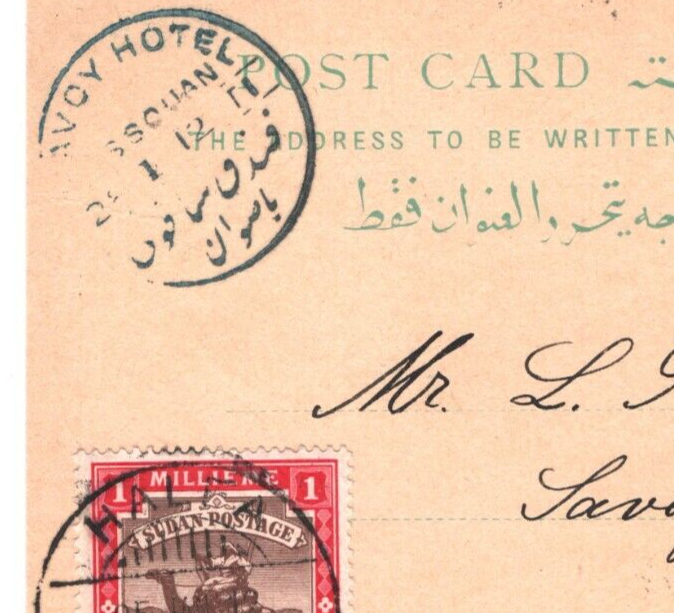 AVOY HOTEL
SSOUAN
1 12
فندق سافوى
باصوان
POST CARD
THE ADDRESS TO BE WRITTEN
يتحرر العنوان فقط
Mr. L.
Sav
1 MILLIEME 1
HALFA
SUDAN POSTAGE